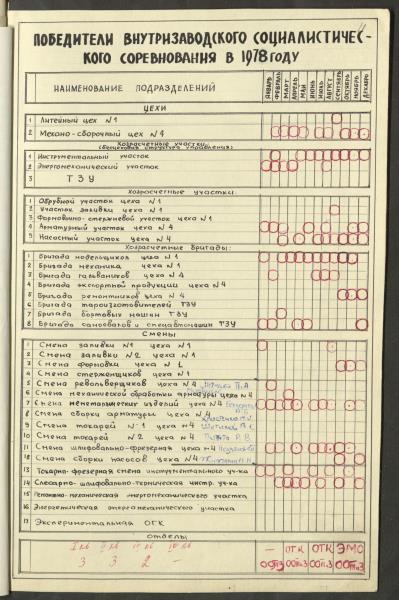 ПОБЕДИТЕЛИ ВНУТРИЗАВОДСКОГО СОЦИАЛИСТИЧЕС-
КОГО СОРЕВНОВАНИЯ В 1978 ГОДУ
НАИМЕНОВАНИЕ ПОДРАЗДЕЛЕНИЙ
ЯНВАРЬ
ФЕВРАЛЬ
МАРТ
АПРЕЛЬ
МАЙ
ИЮНЬ
ИЮЛЬ
АВГУСТ
СЕНТЯБРЬ
ОКТЯБРЬ
НОЯБРЬ
ДЕКАБРЬ
ЦЕХИ
1 Литейный цех N1
2 Механо-сборочный цех N4
Хозрасчетные участки:
(бесцеховая структура управления)
1 Инструментальный участок
2 Энергомеханический участок
3 ТЗУ
Хозрасчетные участки:
1 Обрубной участок цеха N1
2 Участок заливки цеха N1
3 Формовочно-стержневой участок цеха N1
4 Арматурный участок цеха N4
5 Насосный участок цеха N4
Хозрасчетные бригады:
1 Бригада модельщиков цеха N1
2 Бригада механика цеха N1
3 Бригада гальваников цеха N4
4 Бригада экспортной продукции цеха N4
5 Бригада ремонтников цеха N4
6 Бригада тароизготовителей ТЗУ
7 Бригада бортовых машин ТЗУ
8 Бригада самосвалов и спецавтомашин ТЗУ
Смены
1 Смена заливки N1 цеха N1
2 Смена заливки N2 цеха N1
3 Смена формовки цеха N1
4 Смена стерженщиков цеха N1
5 Смена револьверщиков цеха N4
6 Смена механической обработки арматуры цеха N4
7 Смена механических изделий цеха N4
8 Смена сборки арматуры цеха N4
9 Смена токарей N1 цеха N4
10 Смена токарей N2 цеха N4
11 Смена шлифовально-фрезерная цеха N4
12 Смена сборки насосов цеха N4
13 Токарно-фрезерная смена инструментального уч-ка
14 Слесарно-шлифовально-термическая инстр. уч-ка
15 Ремонтно-механическая энергомеханического участка
16 Энергетическая энергомеханического участка
17 Экспериментальная ОГК
ОТДЕЛЫ
I кв II кв III кв IV кв
3 3 2 -
- ОГК ОГК ЭМО
ООТиЗ ООТиЗ ООТиЗ ООТиЗ